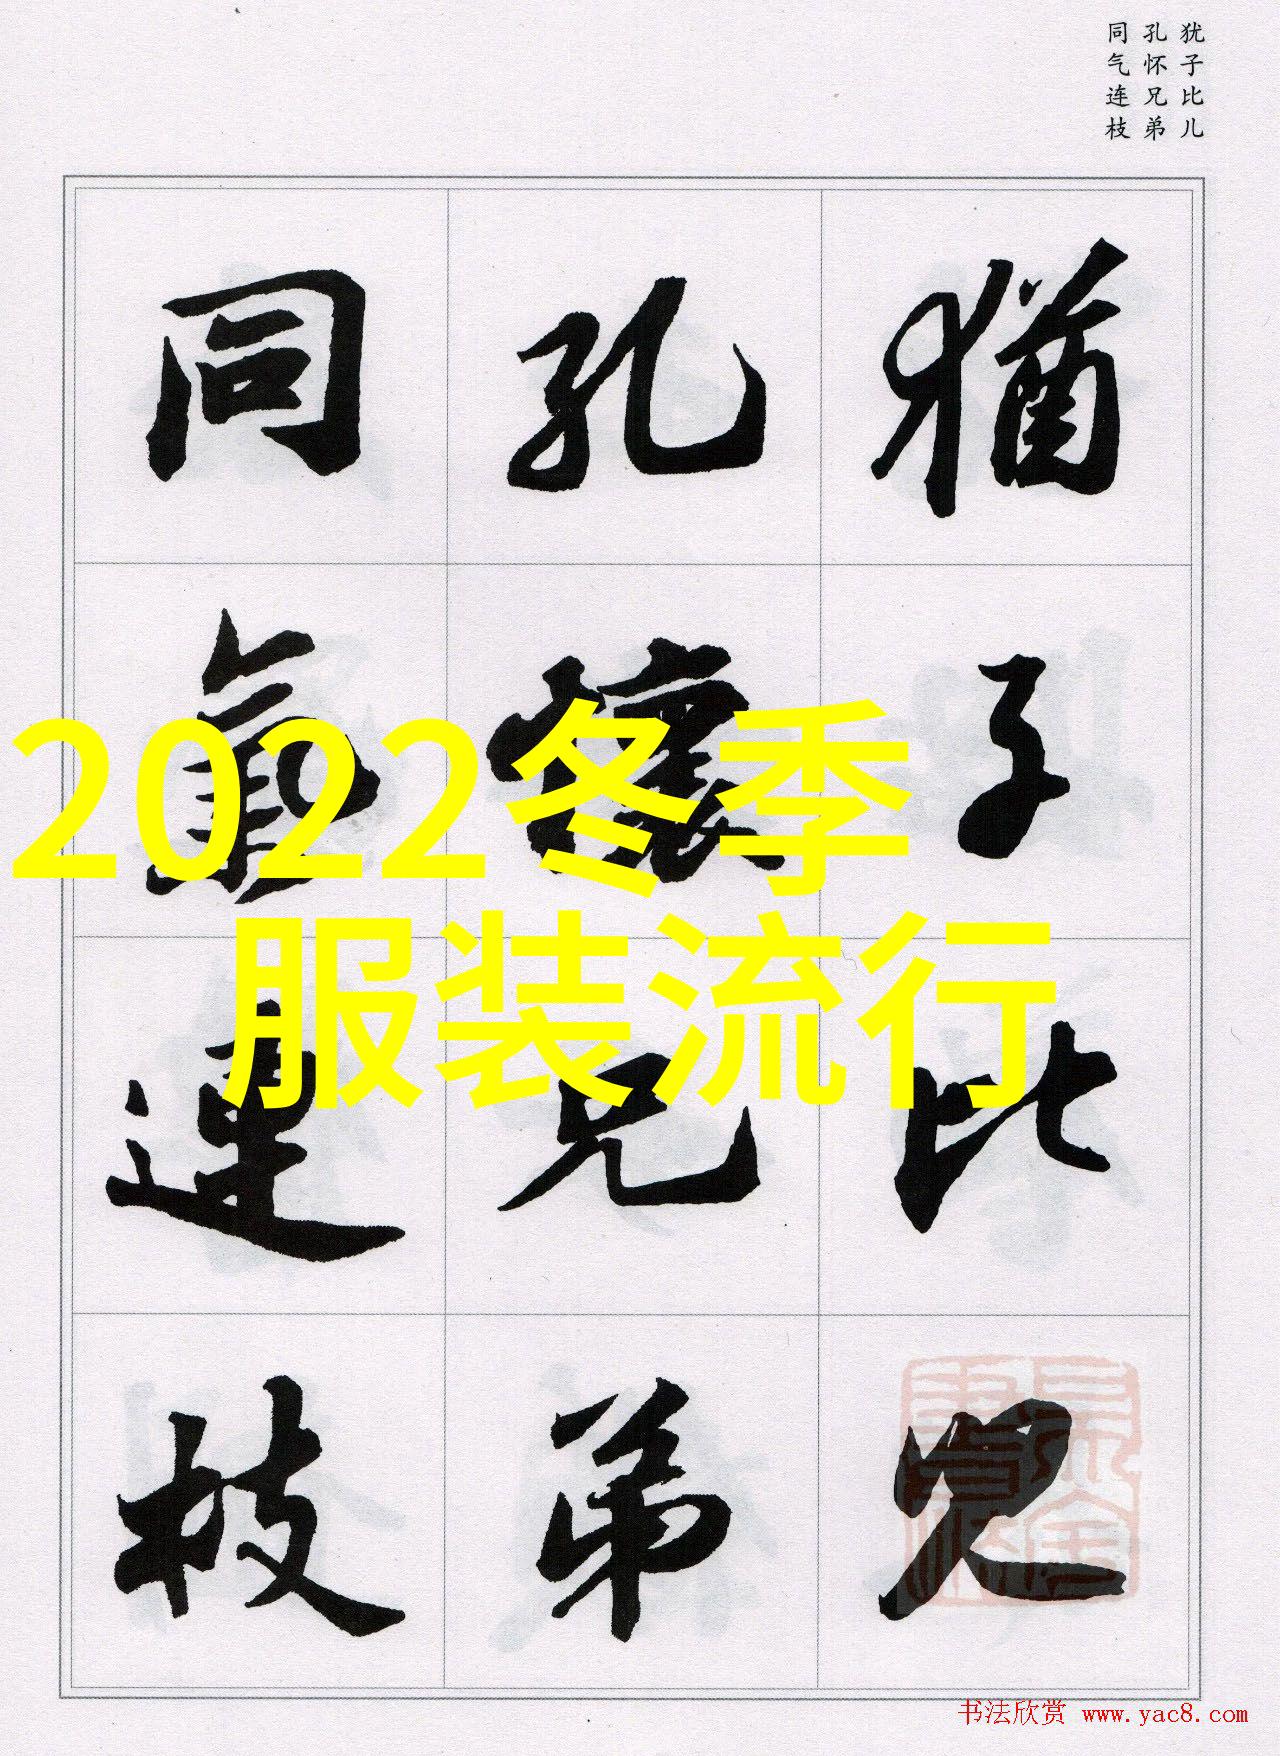 犹子比儿
孔怀兄弟
同气连枝
猶子比兒
孔懷兄弟
同氣連枝
2022冬季
服装流行
书法欣赏 www.yac8.com